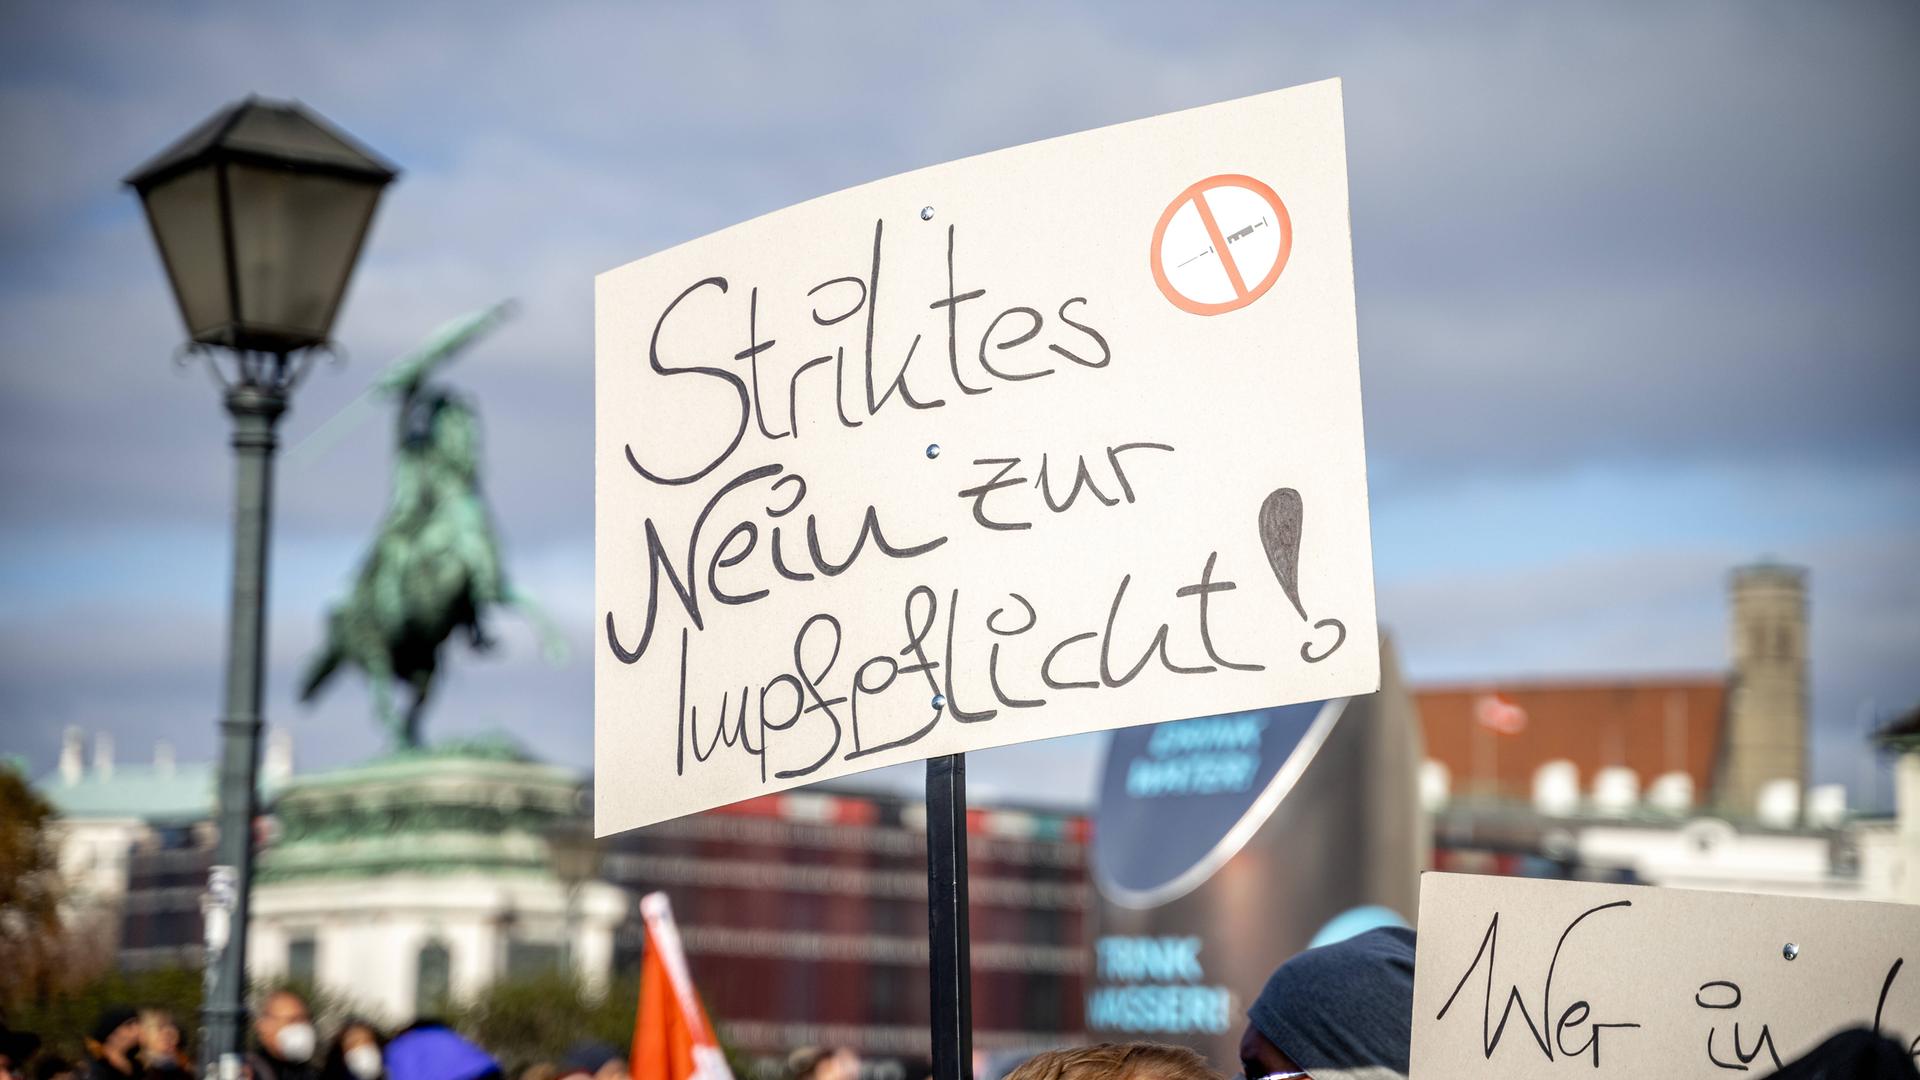 Striktes
Nein zur
Impfpflicht!
DRINK
WATER!
TRINK
WASSER!
Wer in